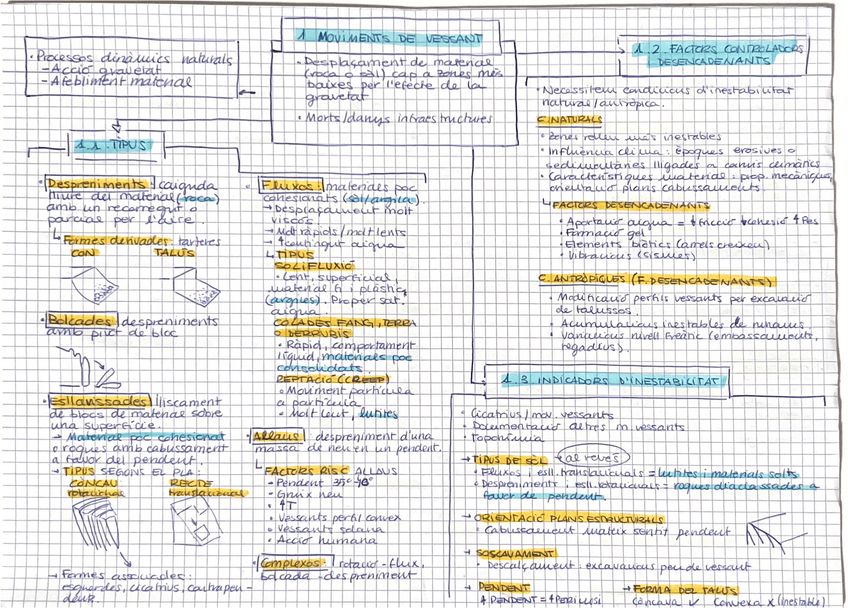 1 MOVIMENTS DE VESSANT
• Desplaçament de material
(roca o sòl) cap a zones més
baixes per l'efecte de la
gravetat
• Morts/danys infraestructures
• Processos dinàmics naturals
- Acció gravetat
- Afebliment material
1.1. TIPUS
• Despreniments: caiguda
lliure del material (roca)
amb un recorregut o
parcial per l'aire.
↳ Formes derivades: tarteres
CON TALUS
• Bolcades: despreniments
amb pivot de bloc
• Esllavissades: lliscament
de blocs de material sobre
una superfície.
→ Material poc cohesionat
o roques amb cabussament
a favor del pendent.
→ TIPUS SEGONS EL PLA
CÒNCAU RECTE
rotacionals translacional
→ Formes associades:
esquerdes, cicatrius, contrapen-
dent.
• Fluxos: materials poc
cohesionats (sòl/argila).
→ Desplaçament molt
viscós.
→ Molt ràpids/molt lents
→ ↑ contingut aigua
↳ TIPUS
SOLIFLUXIÓ
• Lent, superficial,
material fi i plàstic
(argiles). Proper sat.
aigua.
COLADES FANG, TERRA
O DERRUBIS
• Ràpid, comportament
líquid, materials poc
consolidats.
REPTACIÓ (CREEP)
• Moviment partícula
a partícula
• Molt lent, lutites
• Allaus: despreniment d'una
massa de neu en un pendent.
↳ FACTORS RISC ALLAUS
• Pendent 35º-
• Gruix neu
• ↑T
• Vessants perfil convex
• Vessants solana
• Acció humana
• Complexos: rotació-flux,
bolcada-despreniment
1.2. FACTORS CONTROLADORS
DESENCADENANTS
• Necessitem condicions d'inestabilitat
natural/antròpica.
C. NATURALS
• Zones relleu més inestables
• Influència clima: èpoques erosives o
sedimentàries lligades a canvis climàtics
• Característiques material: prop. mecàniques,
orientació plans cabussaments.
↳ FACTORS DESENCADENANTS
• Aportació aigua = ↓fricció ↓cohesió ↑Pes
• Formació gel
• Elements biòtics (arrels creixen)
• Vibracions (sismes)
C. ANTRÒPIQUES (F. DESENCADENANTS)
• Modificació perfils vessants per excavació
de talussos.
• Acumulacions inestables de runams.
• Variacions nivell freàtic (embassaments,
regadius).
1.3 INDICADORS D'INESTABILITAT
• Cicatrius/mov. vessants
• Documentació altres m. vessants
• Toponímia
→ TIPUS DE SÒL (al revés)
• Fluxos i esll. translacionals = lutites i materials solts
• Despreniments i esll. rotacionals = roques diaclassades a
favor de pendent.
→ ORIENTACIÓ PLANS ESTRUCTURALS
• Cabussament mateix sentit pendent
→ SOSCAVAMENT
• Descalçament: excavacions peu de vessant
→ PENDENT → FORMA DEL TALUS
↑ PENDENT = ↑ PERILLÓS còncava ✓ convexa X (inestable)